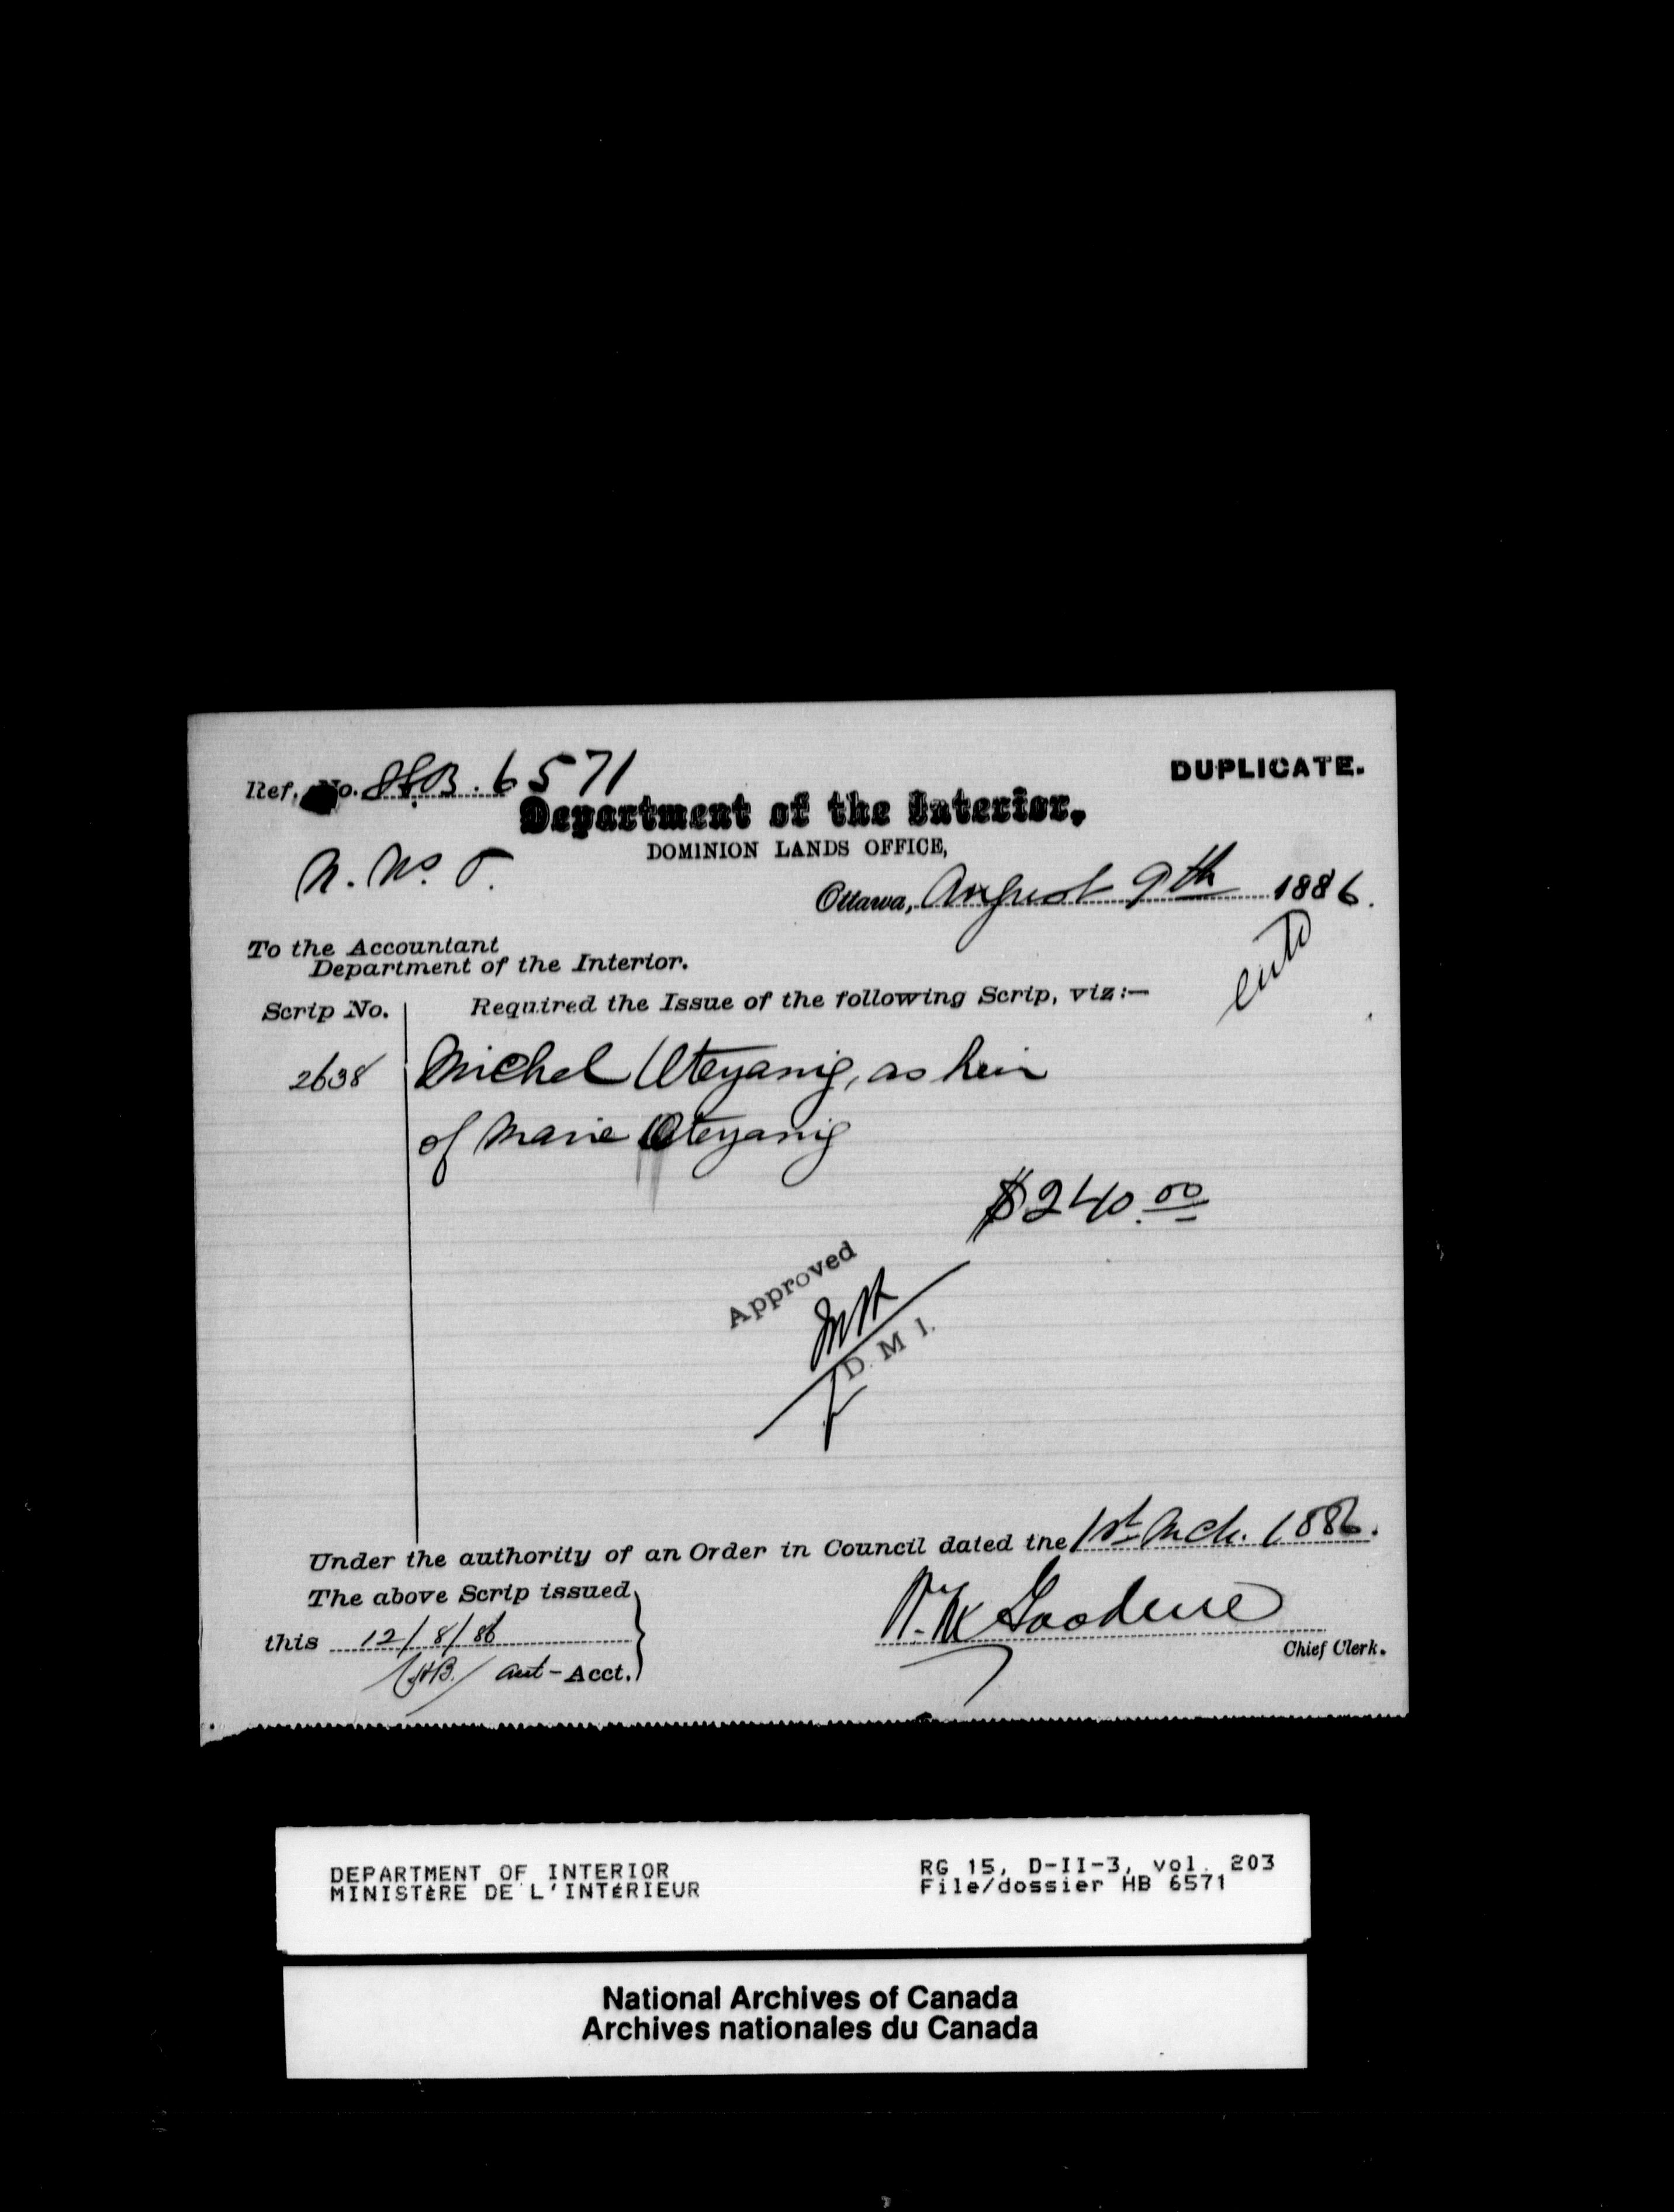 Ref. No. H.B. 6571
DUPLICATE.
Department of the Interior,
DOMINION LANDS OFFICE,
N. W. T.
Ottawa, August 9th 1886.
entd
To the Accountant
Department of the Interior.
Scrip No. Required the Issue of the following Scrip, viz:—
2638 Michel Oteyanig, as heir
of Marie Oteyanig
$240.00
Approved
D. M I.
Under the authority of an Order in Council dated the 1st Mch. 1886.
The above Scrip issued
this 12/8/86
Chief Clerk.
Acct.
DEPARTMENT OF INTERIOR
MINISTÈRE DE L'INTÉRIEUR
RG 15, D-II-3, vol. 203
File/dossier HB 6571
National Archives of Canada
Archives nationales du Canada